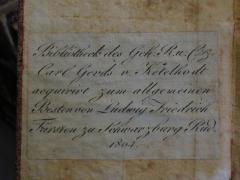 Bibliotheck des Geh. Ra. Cz.
Carl Gerds v. Ketelhodt
acquirirt zum allgemeinen
Besten von Ludwig Friedrich
Fürsten zu Schwarzburg Rud.
1804.